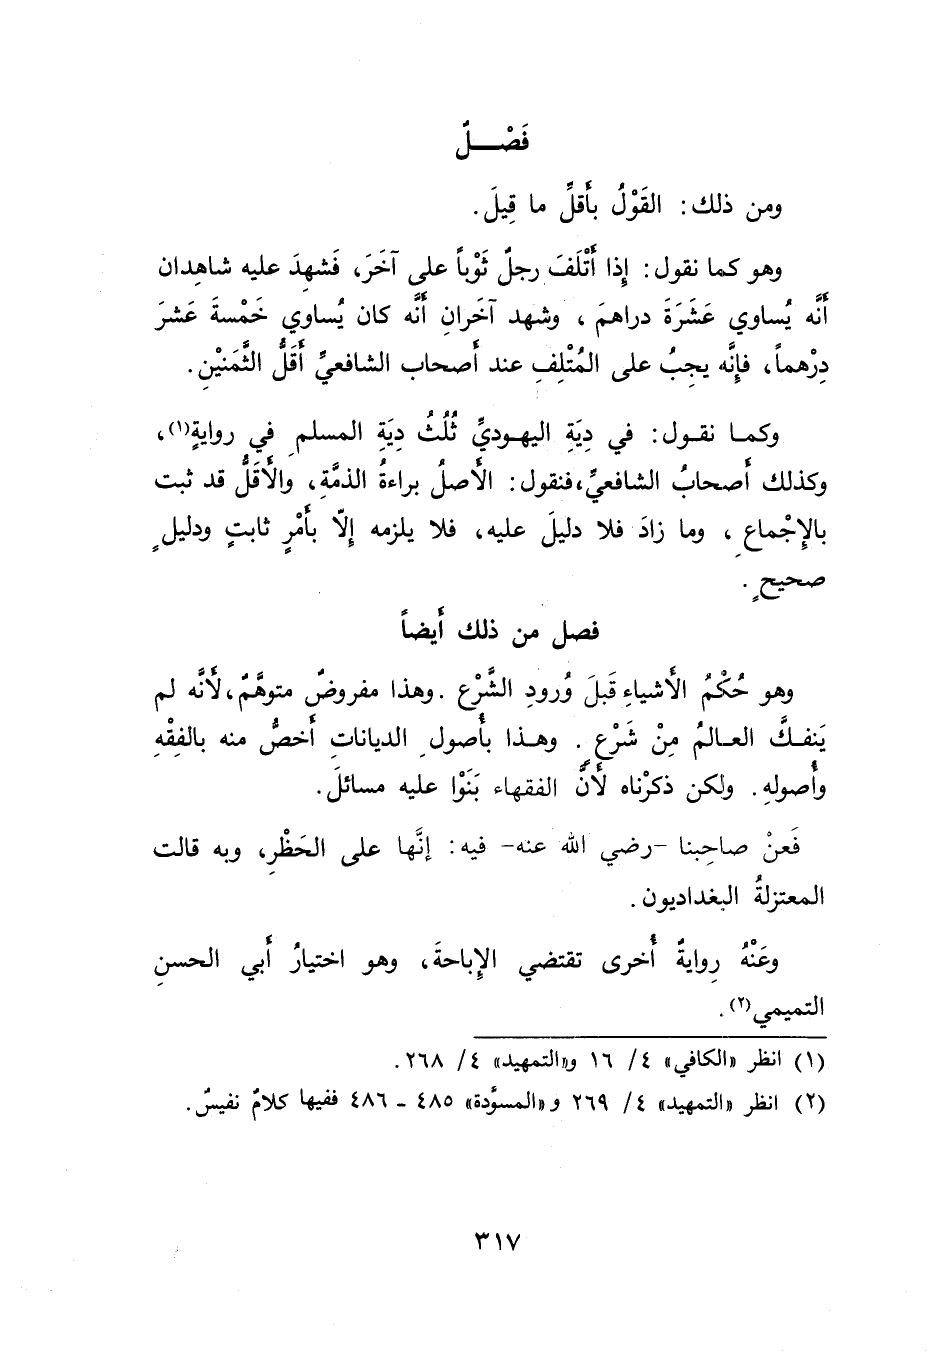 فَصْـــلٌ
ومن ذلك: القَوْلُ بأَقلِّ ما قِيلَ.
وهو كما نقول: إِذا أَتْلَفَ رجلٌ ثَوْباً على آخَرَ، فَشهِدَ عليه شاهِدان
أَنَّه يُساوي عَشَرَةَ دراهمَ، وشهد آخَرانِ أَنَّه كان يُساوي خَمْسةَ عَشرَ
دِرْهماً، فإِنَّه يجبُ على المُتْلِفِ عند أَصحاب الشافعيِّ أَقَلُّ الثَّمَنَيْنِ.
وكمـا نقـول: في دِيَةِ اليهـوديِّ ثُلُثُ دِيَةِ المسلمِ في روايةٍ(١)،
وكذلك أَصحابُ الشافعيِّ، فنقول: الأَصلُ براءةُ الذمَّةِ، والأَقَلُّ قد ثبت
بالإِجْماعِ، وما زادَ فلا دليلَ عليه، فلا يلزمه إِلّا بأَمْرٍ ثابتٍ ودليلٍ
صحيحٍ.
فصل من ذلك أَيضاً
وهو حُكْمُ الأَشياءِ قَبلَ وُرودِ الشَّرْعِ. وهذا مفروضٌ متوهَّمٌ، لأَنَّه لم
يَنفـكَّ العـالمُ مِنْ شَرْعٍ. وهـذا بأُصولِ الدياناتِ أَخصُّ منه بالفِقْهِ
وأُصولهِ. ولكن ذكرْناه لأَنَّ الفقهاء بَنَوْا عليه مسائلَ.
فَعنْ صاحِبنا -رضي الله عنه- فيه: إنَّها على الحَظْرِ، وبه قالت
المعتزلةُ البغداديون.
وعَنْهُ رِوايةٌ أُخرى تقتضي الإِباحةَ، وهو اختيارُ أَبي الحسنِ
التميمي(٢).
(١) انظر «الكافي» ٤/ ١٦ و«التمهيد» ٤/ ٢٦٨.
(٢) انظر «التمهيد» ٤/ ٢٦٩ و«المسوَّدة» ٤٨٥ - ٤٨٦ ففيها كلامٌ نفيسٌ.
٣١٧